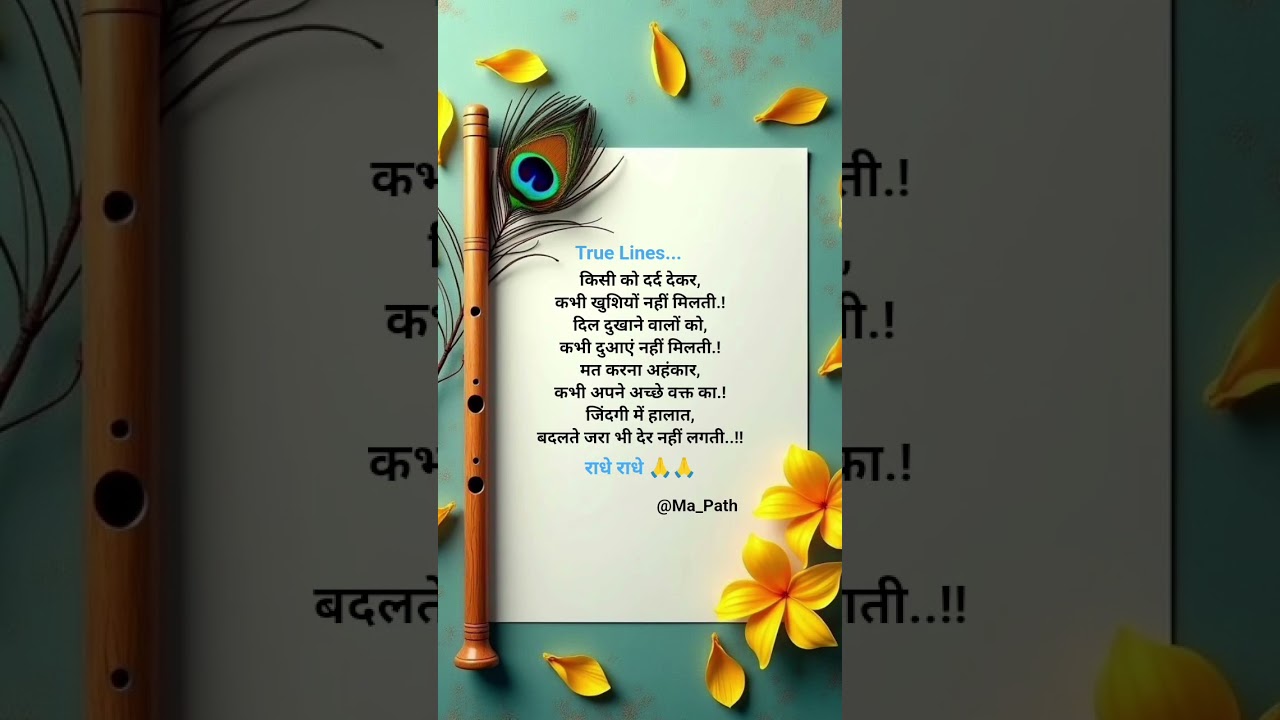 True Lines...
किसी को दर्द देकर,
कभी खुशियों नहीं मिलती.!
दिल दुखाने वालों को,
कभी दुआएं नहीं मिलती.!
मत करना अहंकार,
कभी अपने अच्छे वक्त का.!
जिंदगी में हालात,
बदलते जरा भी देर नहीं लगती..!!
राधे राधे 🙏🙏
@Ma_Path